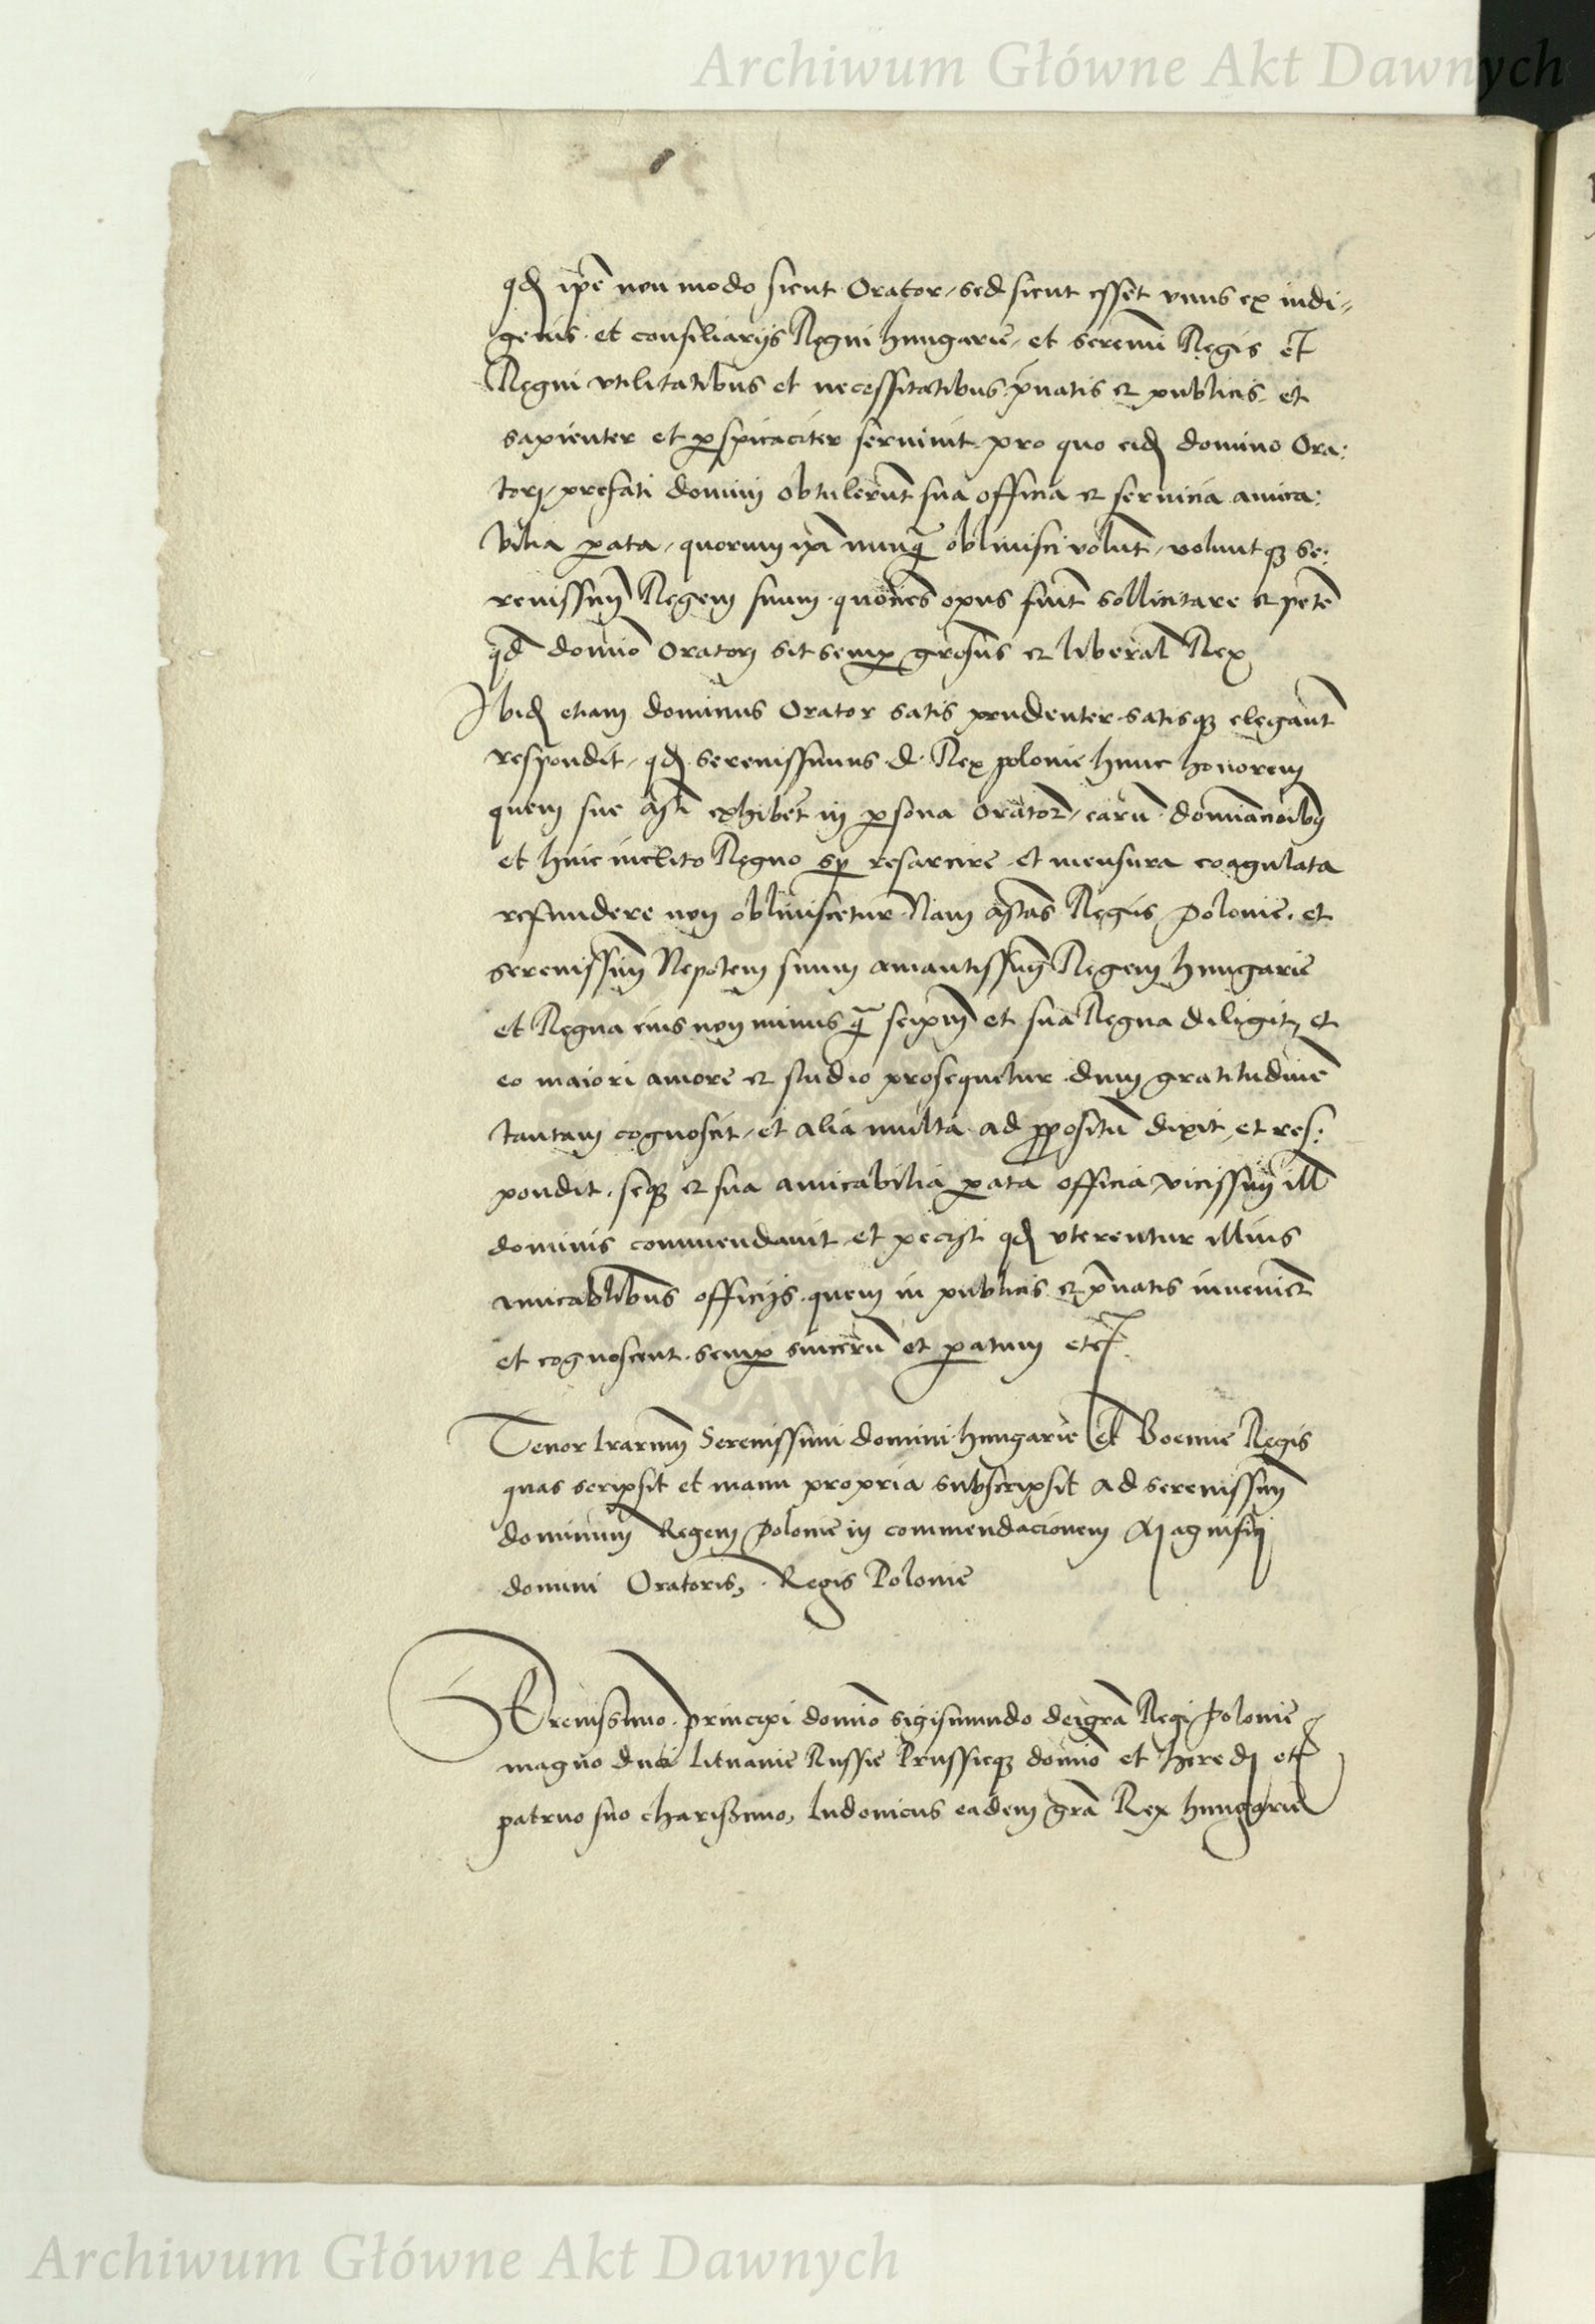 Archiwum Główne Akt Dawnych
qđ ip̄e non modo sicut Orator, sed sicut esset vnus ex indi=
genis. et consiliarijs Regni hungarie, et sereniss̄ Regis et
Regni vtilitatibus et necessitatibus p̄uatis et publicis. et
sapienter et perspicaciter seruiuit. pro quo eid̄ domino Ora:
tori, prefati domini obtulerūt sua officia et seruicia amica:
bilia parata, quorum ip̄i nunq̄ obliuisci volūt, voluntq3 se:
renissim̄ Regem suum. quocies opus fuit̄ sollicitare et peter̄
qđ domīo Oratori sit semp̱ gr̄osus et liberal̄ Rex
Ibid̄ etiam dominus Orator satis prudenter satisq3 elegant̄
respondit, qđ serenissimus d. Rex polonie hunc honorem
quem sue exhibet in persona Orator̄, earū domīacioibꝫ
et huic inclito Regno sp̱ resarcire et mensura coagulata
refundere non obliuiscetur. Nam Regis Polonie. et
serenissim̄ Nepotem suum amantissim̄ Regem hungarie
et Regna eius non minus q̄ seip̄m et sua Regna diligit, et
eo maiori amore et studio prosequetur. dum gratitudinē
tantam cognoscit, et alia multa ad p̱positū dixit, et res:
pondit. seq3 et sua amicabilia parata officia vicissim ill̄
dominis commendauit et peciit qđ vterentur illius
amicabilibus officijs. quem in publicis et p̄uatis inuenier̄
et cognoscent. semp̱ sincerū et paratum etc̄.
Tenor lr̄arum Serenissimi domini hungarie et Boemie Regis
quas scripsit et manu propria subscripsit ad serenissim̄
dominum Regem Polonie in commendacionem Magnifici
domini Oratoris, Regis Polonie
SErenissimo. principi domīo sigismundo dei gr̄a Regi Polonie
magno duci Lituanie Russie Prussieq3 domīo et heredi etc̄
patruo suo charissimo, ludouicus eadem gr̄a Rex hungarie
Archiwum Główne Akt Dawnych